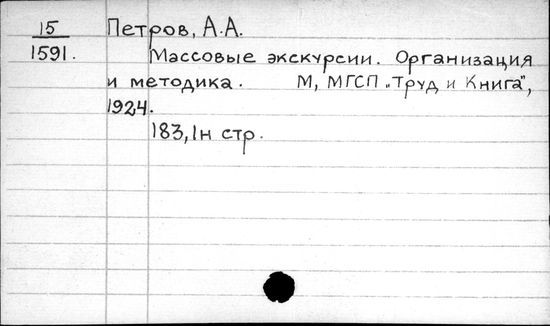 15 Петров, А.А.
1591. Массовые экскурсии. Организация
и методика. М, МГСП „Труд и Книга",
1924.
183,1н стр.